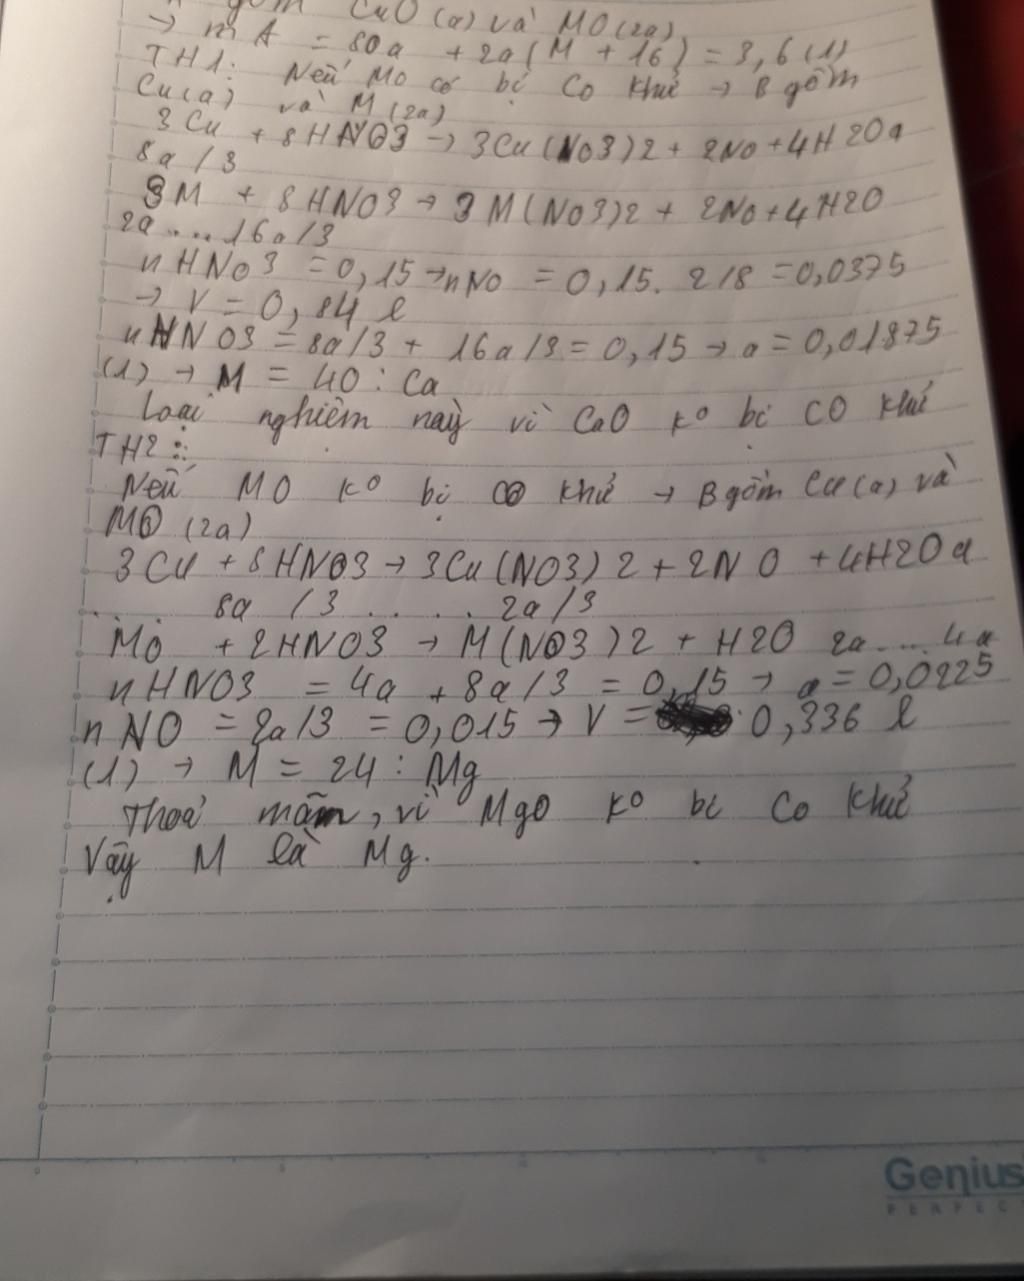 gồm CuO (a) và MO (2a)
→ m A = 80a + 2a (M + 16) = 3,6 (1)
TH1: Nếu Mo có bị Co khử → B gồm
Cu (a) và M (2a)
3Cu + 8HNO3 → 3Cu(NO3)2 + 2No + 4H2O a
8a / 3
3M + 8HNO3 → 3M(NO3)2 + 2No + 4H2O
2a .... 16a/3
nHNo3 = 0,15 → nNo = 0,15. 2/8 = 0,0375
→ V = 0,84 l
nHNO3 = 8a/3 + 16a/3 = 0,15 → a = 0,01875
(1) → M = 40 : Ca
Loại nghiệm này vì CaO ko bị CO khử
TH2 :
Nếu MO ko bị CO khử → B gồm Cu (a) và
MO (2a)
3Cu + 8HNO3 → 3Cu(NO3)2 + 2NO + 4H2O a
.. 8a /3 ...... 2a/3
MO + 2HNO3 → M(NO3)2 + H2O 2a .... 4a
nHNO3 = 4a + 8a/3 = 0,15 → a = 0,0225
nNO = 2a/3 = 0,015 → V = 0,336 l
(1) → M = 24 : Mg
Thoả mãn, vì MgO ko bị Co khử
Vậy M là Mg.
Genius
PERFEC